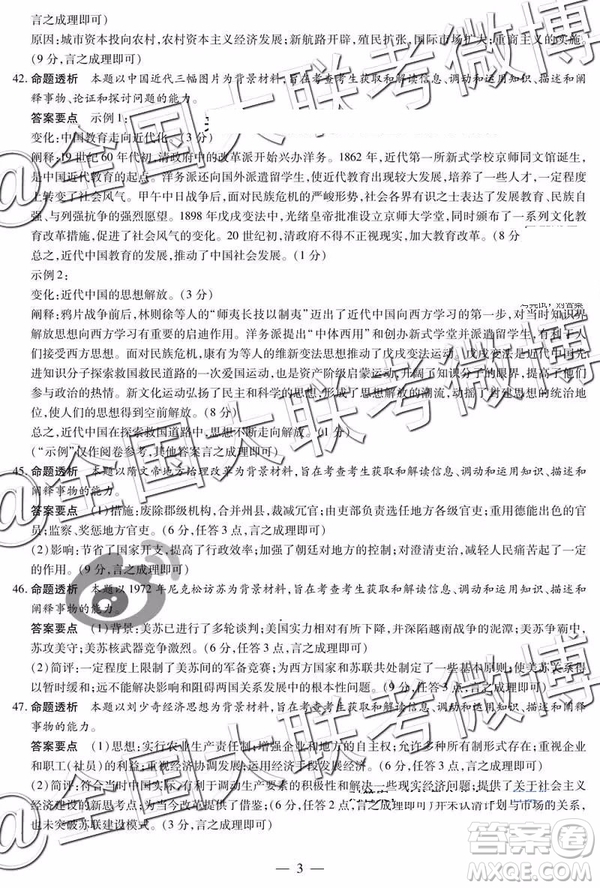 言之成理即可)
原因:城市资本投向农村,农村资本主义经济发展;新航路开辟,殖民扩张,国际市场扩大;重商主义的实施。
(9 分,言之成理即可)
42. 命题透析 本题以中国近代三幅图片为背景材料,旨在考查考生获取和解读信息、调动和运用知识、描述和阐
释事物、论证和探讨问题的能力。
答案要点 示例 1:
变化:中国教育走向近代化。(3 分)
阐释:19 世纪 60 年代初,清政府中的改革派开始兴办洋务。1862 年,近代第一所新式学校京师同文馆诞生,
是中国近代教育的起点。洋务派还派遣留学生,使近代教育出现较大发展,并培养了一些人才,一定程度
上转变了社会风气。甲午中日战争后,面对民族危机的严峻形势,社会各界有识之士表达了发展教育、民族自
强的强烈愿望。1898 年戊戌变法中,光绪皇帝批准创办了京师大学堂,并同时颁布了一系列文化教
育改革措施,促进了社会风气的变化。20 世纪初,清政府不得不正视现实,加大教育改革。(8 分
总之,近代中国教育的发展,推动了中国社会发展。(1 分)
示例 2:
变化:近代中国的思想解放。(3 分)
阐释:鸦片战争前后,林则徐等人的“师夷长技以制夷”迈出了近代中国向西方学习的第一步,对当时知识界
解放思想向西方学习有重要的启迪作用。洋务派提出“中体西用”和创办新式学堂并派遣留学生,使中国
思想进一步解放。面对民族危机,康有为等人的维新变法思想推动了戊戌变法,戊戌变法是中国先
进知识分子探索救国救民道路的一次爱国运动,也是资产阶级启蒙运动,形成了思想解放的潮流,提高了他们
参与政治的热情。新文化运动弘扬了民主科学思想,形成了思想解放的潮流,动摇了封建思想的统
治地位,使思想得到空前解放。(8 分)
总之,近代中国在探索救国道路中,思想不断走向解放。(1 分)
(“示例”仅作阅卷参考,其他答案言之成理即可)
45. 命题透析 本题以隋文帝地方治理改革为背景材料,旨在考查考生获取和解读信息、调动和运用知识、描述和
阐释事物的能力。
答案要点 (1)措施:废除郡级机构,合并州县,裁减冗官;由吏部负责选任地方各级官员;重用德能出众的官
员;监察、奖惩地方官吏。(6 分,任答 3 点,言之成理即可)
(2)影响:节约了国家开支;提高了行政效率;加强了朝廷对地方的控制;对澄清吏治、减轻人民痛苦起了一定
的作用。(9 分,任答 3 点,言之成理即可)
46. 命题透析 本题以 1972 年尼克松访苏为背景材料,旨在考查考生获取和解读信息、调动和运用知识、描述和
阐释事物的能力。
答案要点 (1)背景:美苏已进行了多轮谈判;美国实力相对下降,并深陷越南战争的泥潭;美苏争霸中,
苏攻美守;美苏核武器竞争激烈。(6 分,任答 3 点,言之成理即可)
(2)简评:一定程度上限制了美苏间的军备竞赛;为西方国家和苏联共处制定了一些基本原则;美苏关系得
以暂时缓和;不可能消除影响和阻碍两国关系发展中的根本性问题。(9 分,任答 3 点,言之成理即可)
47. 命题透析 本题以刘少奇经济思想为背景材料,旨在考查考生获取和解读信息、调动和运用知识、描述和阐释
事物的能力。
答案要点 (1)思想:实行农业生产责任制;增强企业和地方的自主权;允许多种所有制形式存在;兼顾企业
和职工(社员)的利益;重视运用经济手段发展经济。(9 分,任答 3 点,言之成理即可)
(2)简评:符合当时中国实际,有利于调动生产要素的积极性和解决一些现实经济问题;提供了关于社会主义
经济建设的新思考点;为中国改革提供了借鉴;(6 分,任答 2 点,言之成理即可)但未认清计划与市场的关系,
也未突破苏联建设模式。(6 分,言之成理即可)
— 3 —
@全国大联考微博
答案圈
MXQE.COM